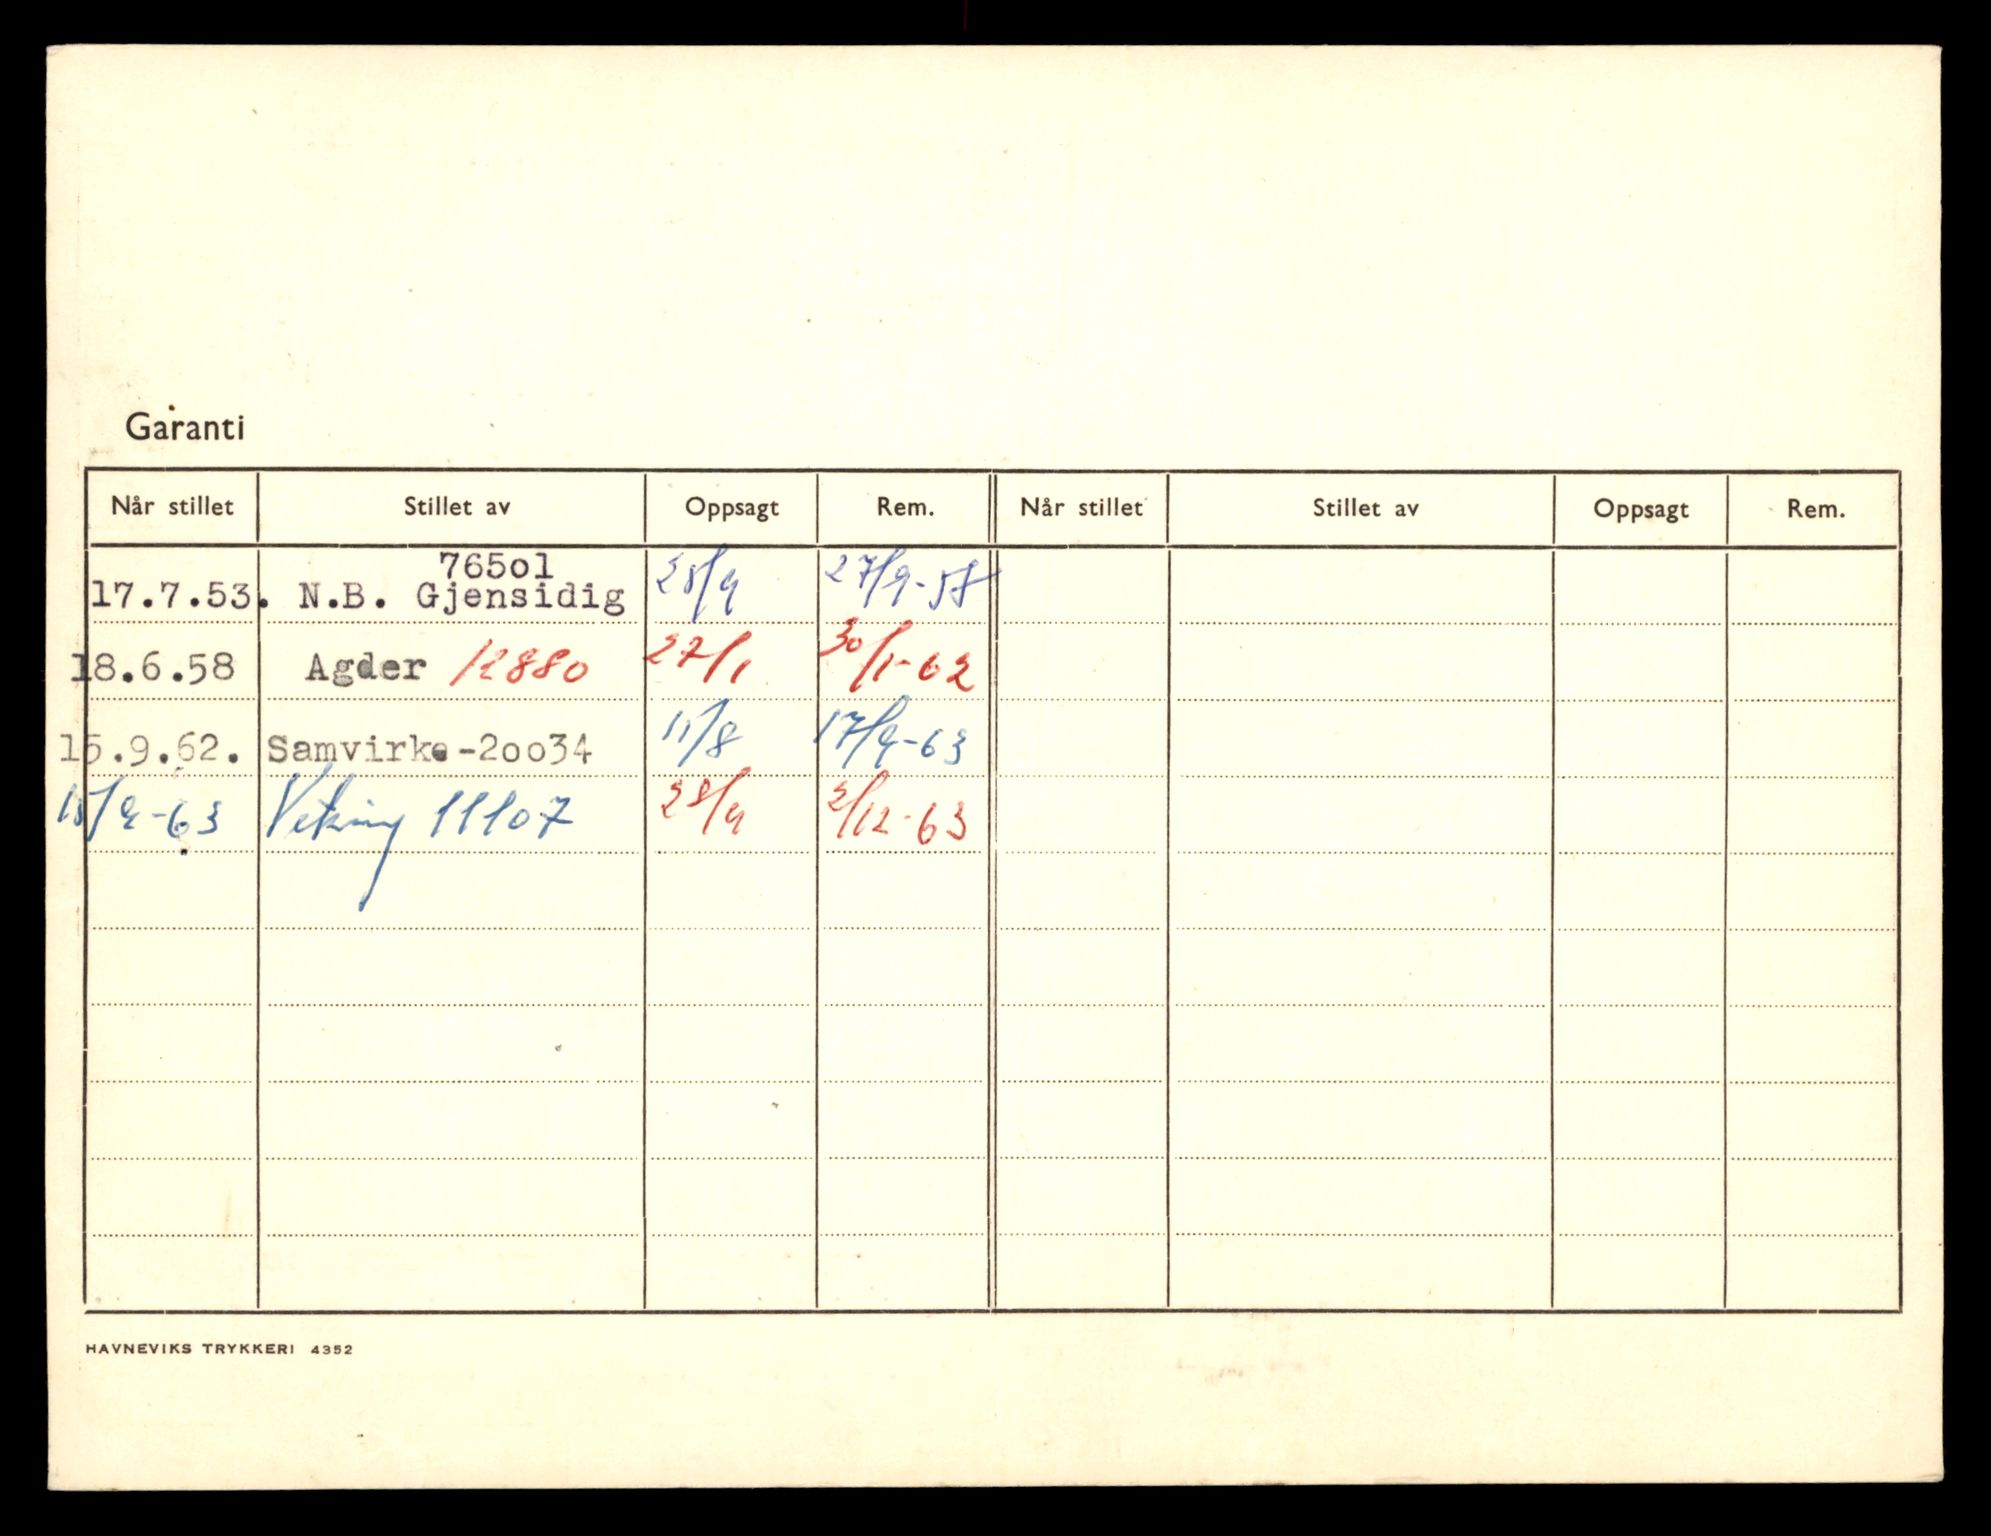 Garanti
Når stillet Stillet av Oppsagt Rem. Når stillet Stillet av Oppsagt Rem.
765ol
17.7.53. N.B. Gjensidig 25/9 27/9-58
18.6.58 Agder 12880 27/1 30/1-62
15.9.62. Samvirke-2oo34 11/8 17/9-63
Viking 11107 28/9 2/12-63
HAVNEVIKS TRYKKERI 4352